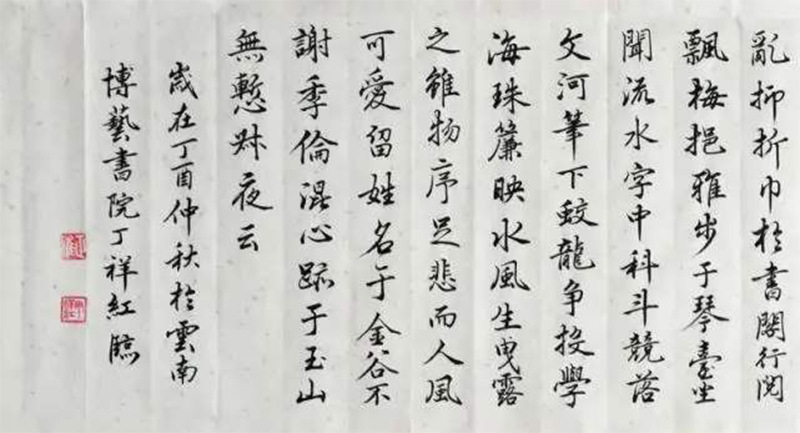 亂抑折巾於書閣行閱
飄梅挹雅步于琴臺坐
聞流水字中科斗競落
文河筆下蛟龍爭投學
海珠簾映水風生曳露
之雖物序足悲而人風
可愛留姓名于金谷不
謝季倫混心跡于玉山
無慙叔夜云
歲在丁酉仲秋於雲南
博藝書院丁祥紅臨